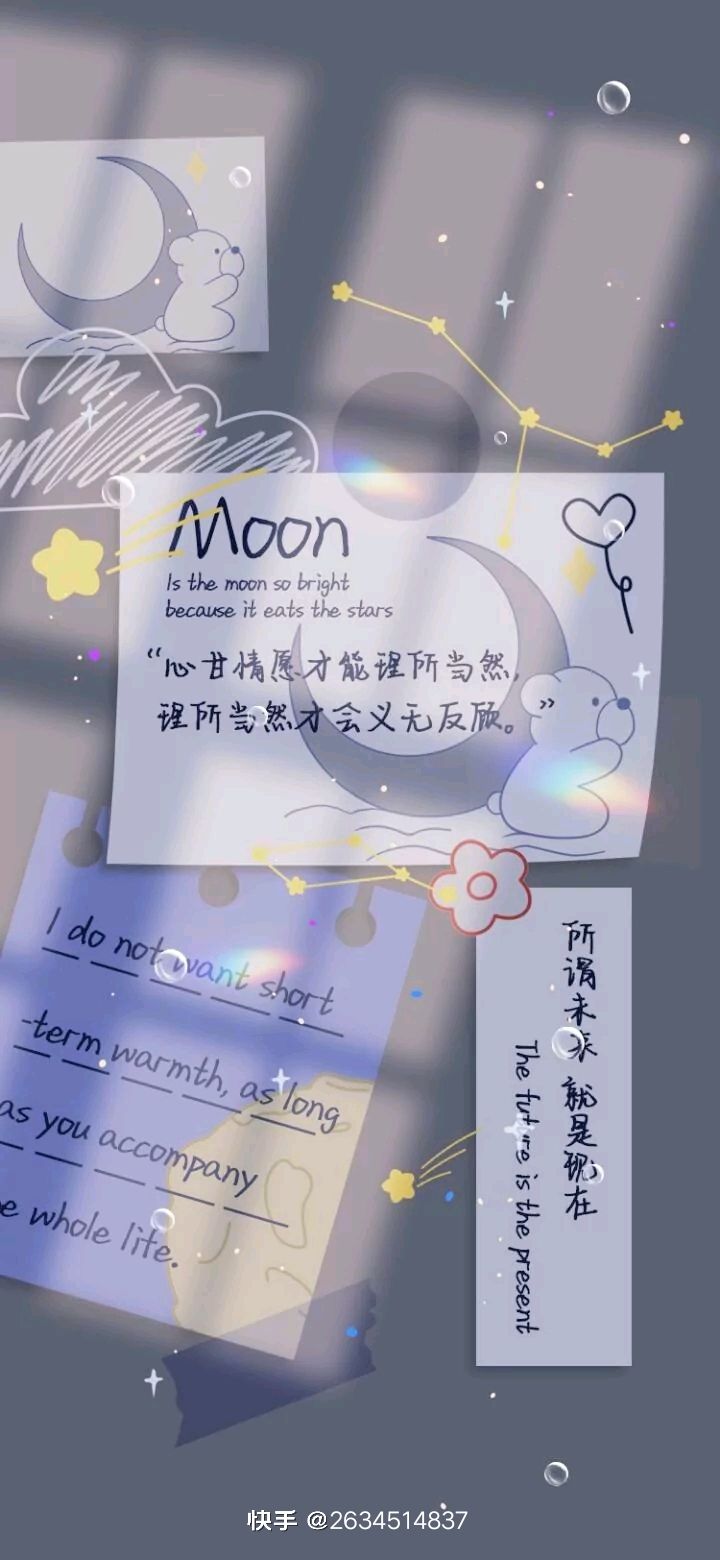 Moon
Is the moon so bright
because it eats the stars
“心甘情愿才能理所当然,
理所当然才会义无反顾。”
I do not want short
-term warmth, as long
as you accompany
whole life.
所谓未来 就是现在
The future is the present
快手 @2634514837